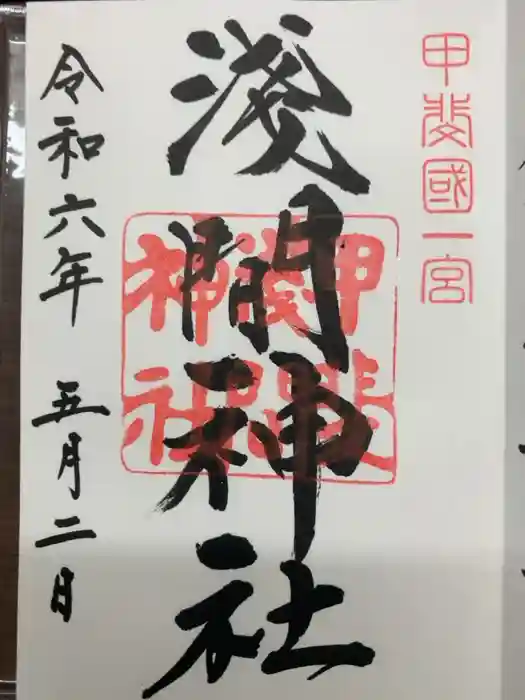 甲斐國一宮
淺間神社
甲斐
淺間
神社
令和六年 五月二日